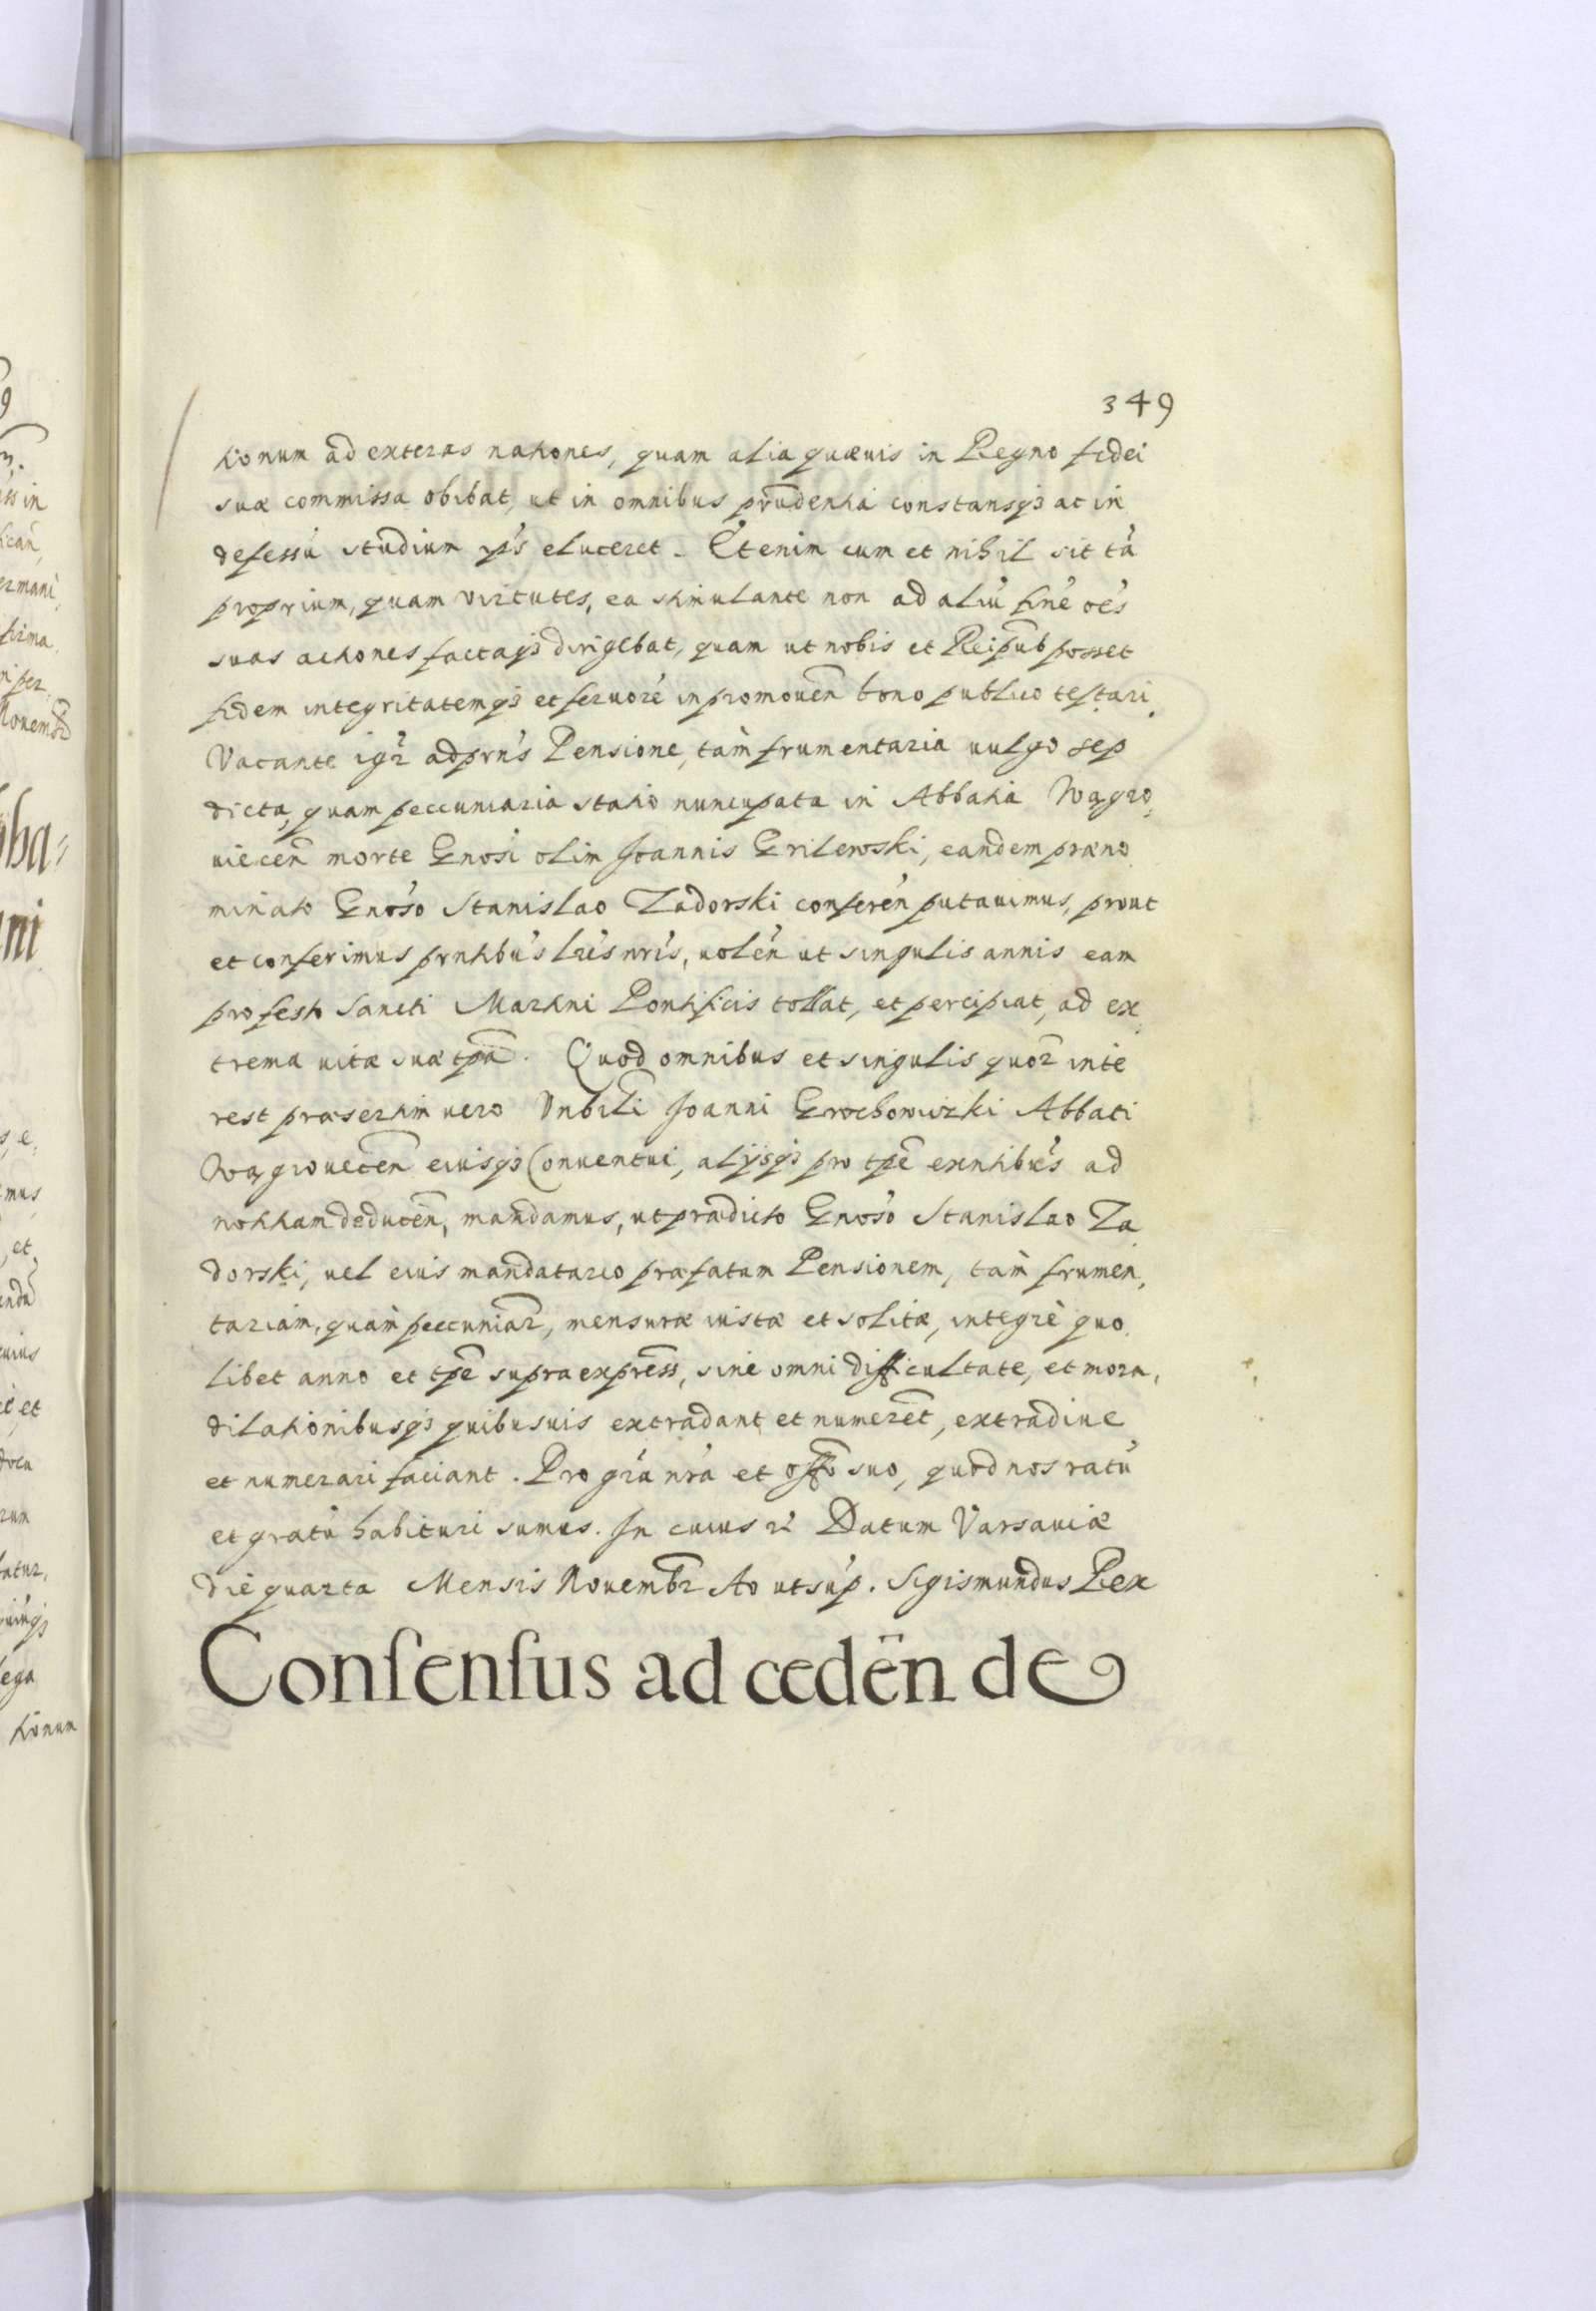 349
tionum ad exteras nationes, quam alia quævis in Regno fidei
suæ commissa obibat, ut in omnibus prudentia constansq3 ac in
defessũ studium ip's eluceret. Etenim cum et nihil sit tã
proprium, quam virtutes, ea stimulante non ad aliũ finẽ oẽs
suas actiones factaq3 dirigebat, quam ut nobis et Reipub posset
fidem integritatemq3 et feruorẽ in promouen̄ bono publico testari.
Vacante igr̃ ad prñs Pensione, tàm frumentaria uulgo sep
dicta, quam peccuniaria statio nuncupata in Abbatia Wągro,
uiecen̄ morte Gnosi olim Joannis Grilewski, eandem præno,
minato Gnoso Stanislao Zadorski conferen̄ putauimus, prout
et conferimus prntibus lr̃is nr̃is, uolen̄ ut singulis annis eam
pro festo Sancti Martini Pontificis tollat, et percipiat, ad ex,
trema uitæ suæ tp̃a. Quod omnibus et singulis quor̃ inte
rest præsertim uero Vnbili Joanni Grochowizki Abbati
Wągrouecen̄ eiusq3 Conuentui, alijsq3 pro tp̃e exntibus ad
notitiam deducen̄, mandamus, ut prædicto Gnoso Stanislao Za,
dorski, uel eius mandatario præfatam Pensionem, tàm frumen,
tariam, quàm peccuniar̃, mensuræ iustæ et solitæ, integrè quo,
libet anno et tp̃e supra expres̃s, sine omni difficultate, et mora,
dilationibusq3 quibusuis extradant et numerẽt, extradiue
et numerari faciant. Pro gr̃a nr̃a et off̃o suo, quod nos ratũ
et gratũ habituri sumus. In cuius rei Datum Varsauiæ
die quarta Mensis Nouembr̃ Ao ut sup. Sigismundus Rex
Conſenſus ad cedën de